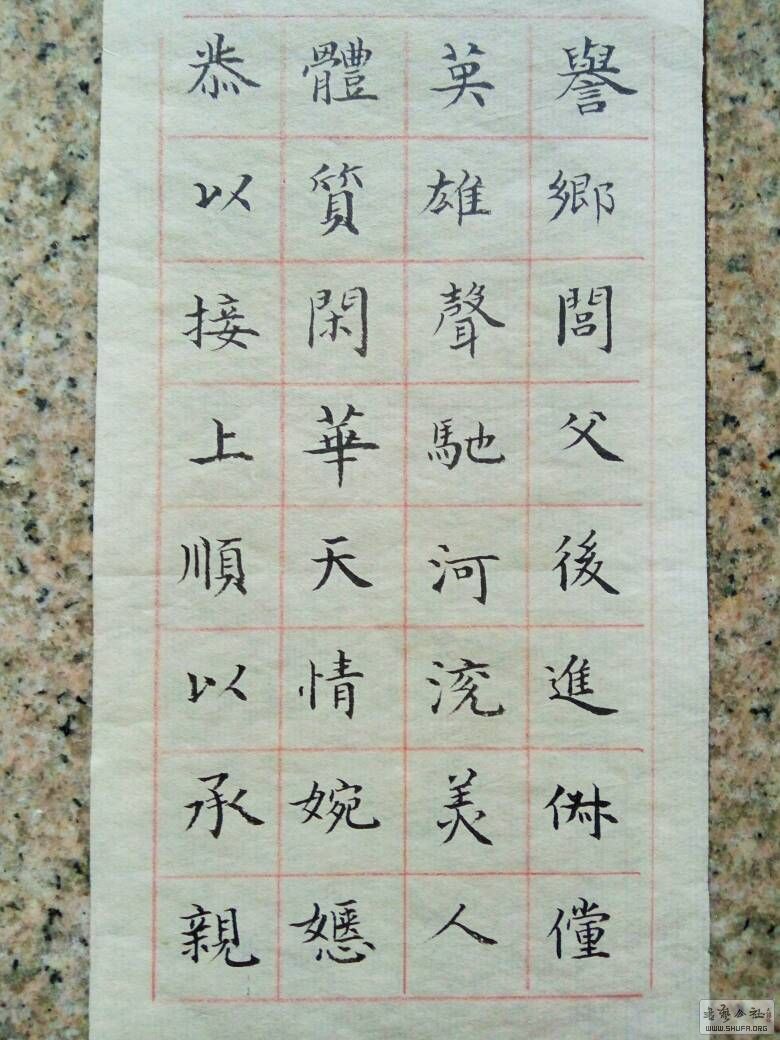 譽鄉閭父後進倜儻
英雄聲馳河流美人
體質閑華天情婉嫕
恭以接上順以承親
WWW.SHUFA.ORG